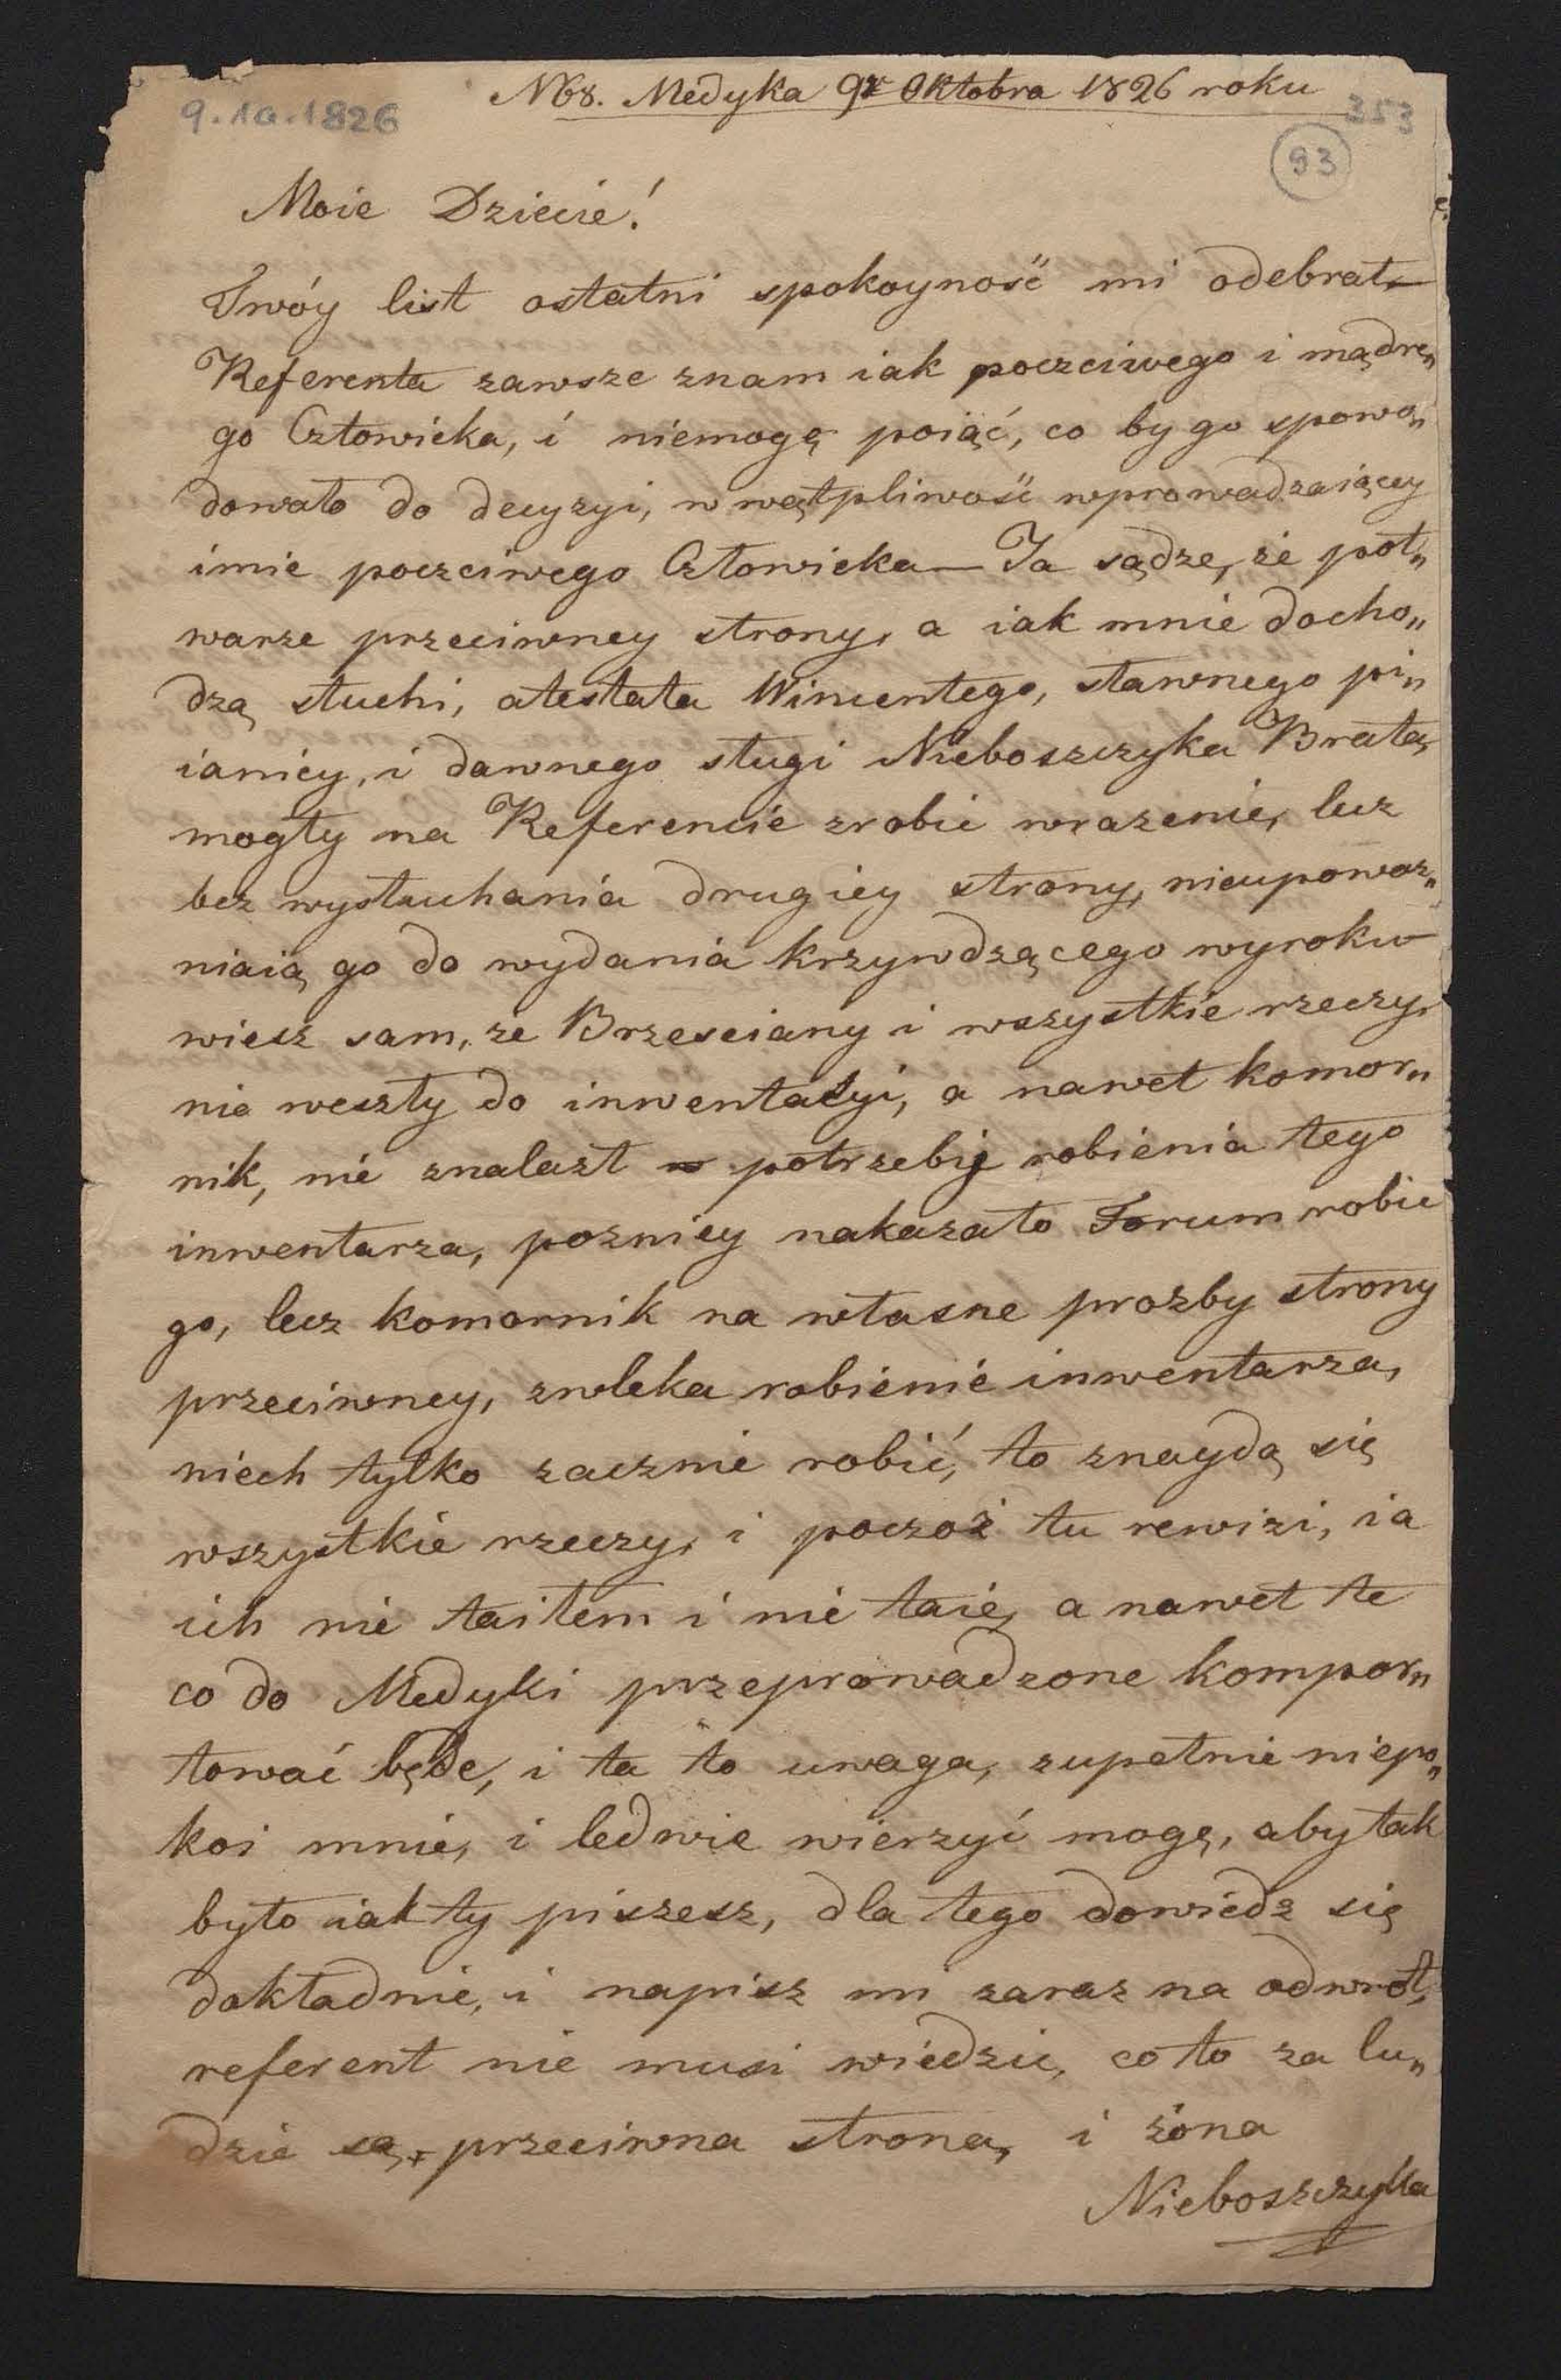 N68. Medyka 9r Oktobra 1826 roku
9.10.1826
353
93
Moie Dziecie!
Twóy list ostatni spokoyność mi odebrał —
Referenta zawsze znam iak poczciwego i mądre„
go Człowieka, i niemogę poiąć, co by go spowo„
dowało do decyzyi, w wątpliwość wprowadzaiącey
imie poczciwego Człowieka — Ja sądze, że pot„
warze przeciwney strony, a iak mnie docho„
dzą słuchi, atestata Wincentego, sławnego pi„
ianicy, i dawnego sługi Nieboszczyka Brata,
mogły na Referencie zrobic wrazenie, lecz
bez wysłuchania drugiey strony, nieupowaz„
niaią go do wydania krzywdzącego wyroku —
wiesz sam, ze Brzesciany i wszystkie rzeczy,
nie weszły do inwentacyi, a nawet komor„
nik, nie znalazł potrzebię robienia tego
inwentarza, pozniey nakazało Forum robic
go, lecz komornik na własne prozby strony
przeciwney, zwleka robienie inwentarza,
niech tylko zacznie robić, to znaydą się
wszystkie rzeczy, i poczoż tu rewizi, ia
ich nie taiłem i nie taię, a nawet te
co do Medyki przeprowadzone kompor„
tować będe, i ta to uwaga, zupełnie niepo„
koi mnie, i ledwie wierzyć mogę, aby tak
było iak ty piszesz, dla tego dowiedz się
dokładnie, i napisz mi zaraz na odwrót,
referent nie musi wiedzic, co to za lu„
dzie są, przeciwna strona, i żona
Nieboszczyka